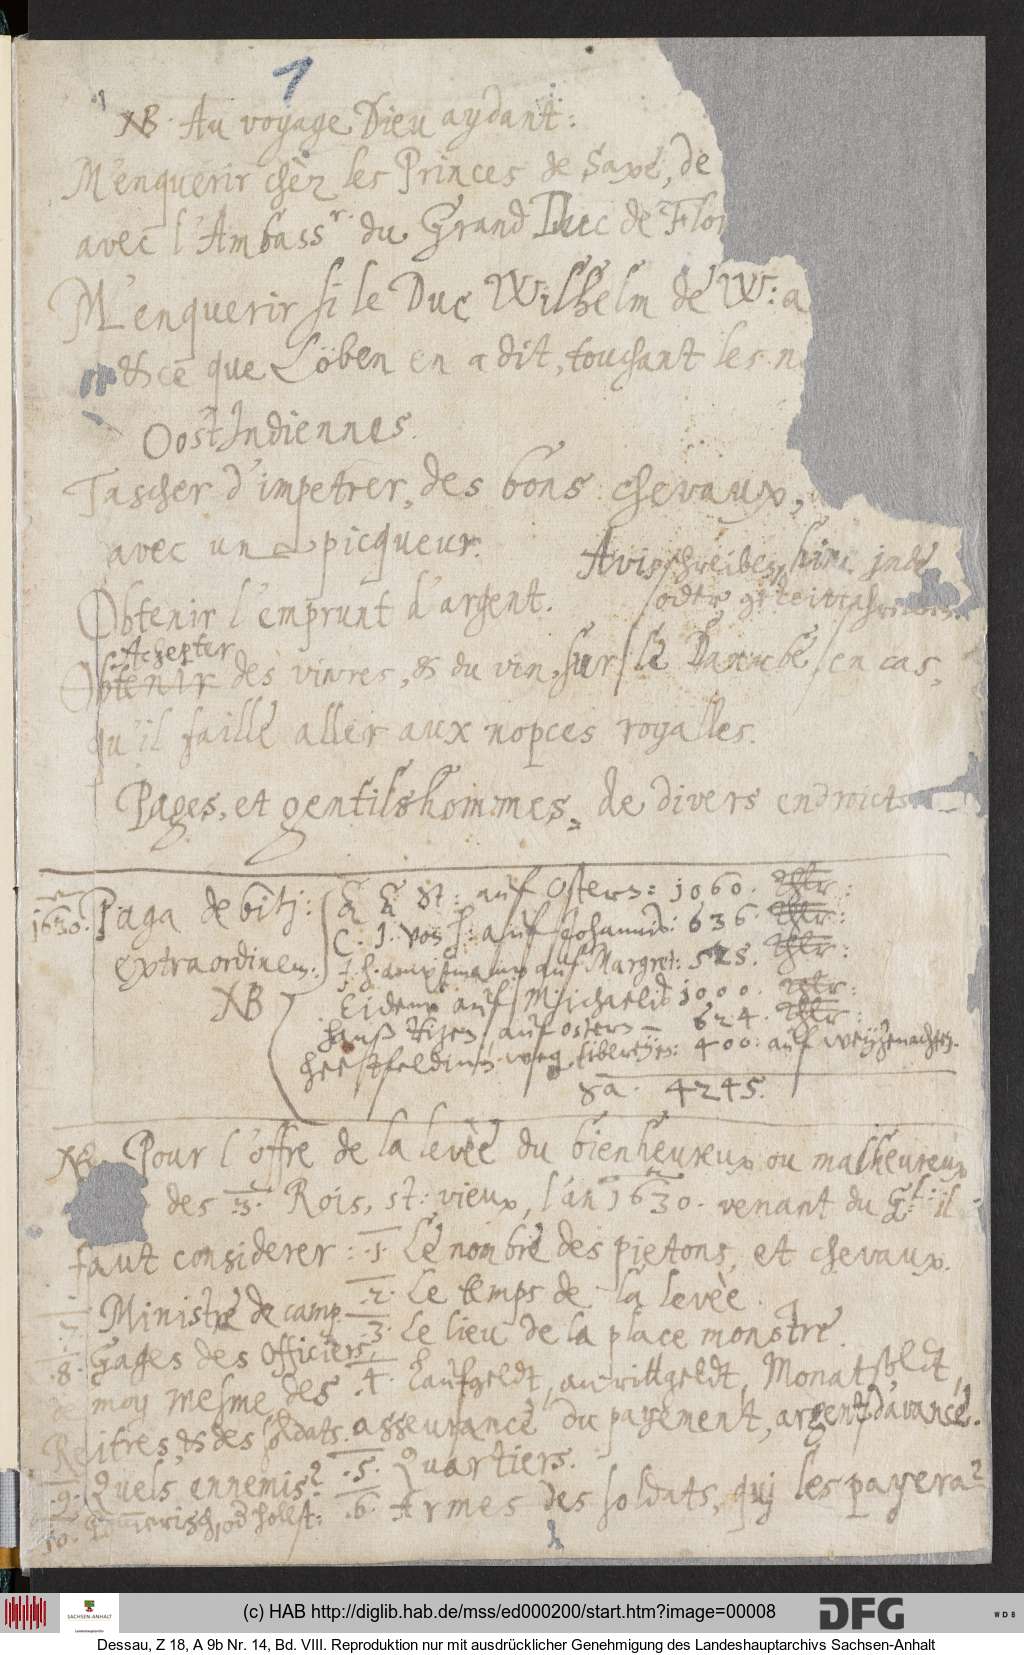 1
NB. Au voyage Dieu aydant:
M'enquerir chèz les Princes de Saxe, de
avec l'Ambassr. du Grand Duc de Flor
M'enquerir si le Duc Wilhelm de W: a
& ce que Löben en a dit, touchant les n
OostIndiennes.
Tascher d'impetrer, des bons chevaux,
avec un picqueur.
Avis schreiben, hinc inde
Obtenir l'emprunt d'argent.
oder
Achepter
Obtenir des vivres, & du vin, sur le Danube en cas,
qu'il faille aller aux nopces royalles.
Pages, et gentilshommes, de divers endroicts.
1630. Paga debitj: auf Ostern: 1060. Thlr:
C. J. von auf Johannis: 636. Thlr:
extraordinem: auf Margret: 525. Thlr:
NB Eidem auf Michaelis 1000. Thlr:
auf ostern 624. Thlr:
400: auf Weyhenachten.
Sa. 4245.
NB. Pour l'offre de la levèe du bienheureux ou malheureux
des .3. Rois, st: vieux, l'an 1630. venant du Gl: il
faut considerer: .1. Le nombre des pietons, et chevaux.
.2. Le temps de la levèe.
.7. Ministre de camp .3. Le lieu de la place monstre.
.8. Gages des Officiers, .4. Laufgeldt, anrittgeldt, Monatsoldt,
de moy mesme, des asseurance du payement, argent d'avance.
Reitres, & des soldats. .5. Quartiers.
.9. Quels ennemis? .6. Armes des soldats, quj les payera?
10.
(c) HAB http://diglib.hab.de/mss/ed000200/start.htm?image=00008
SACHSEN-ANHALT
DFG
WDB
Dessau, Z 18, A 9b Nr. 14, Bd. VIII. Reproduktion nur mit ausdrücklicher Genehmigung des Landeshauptarchivs Sachsen-Anhalt